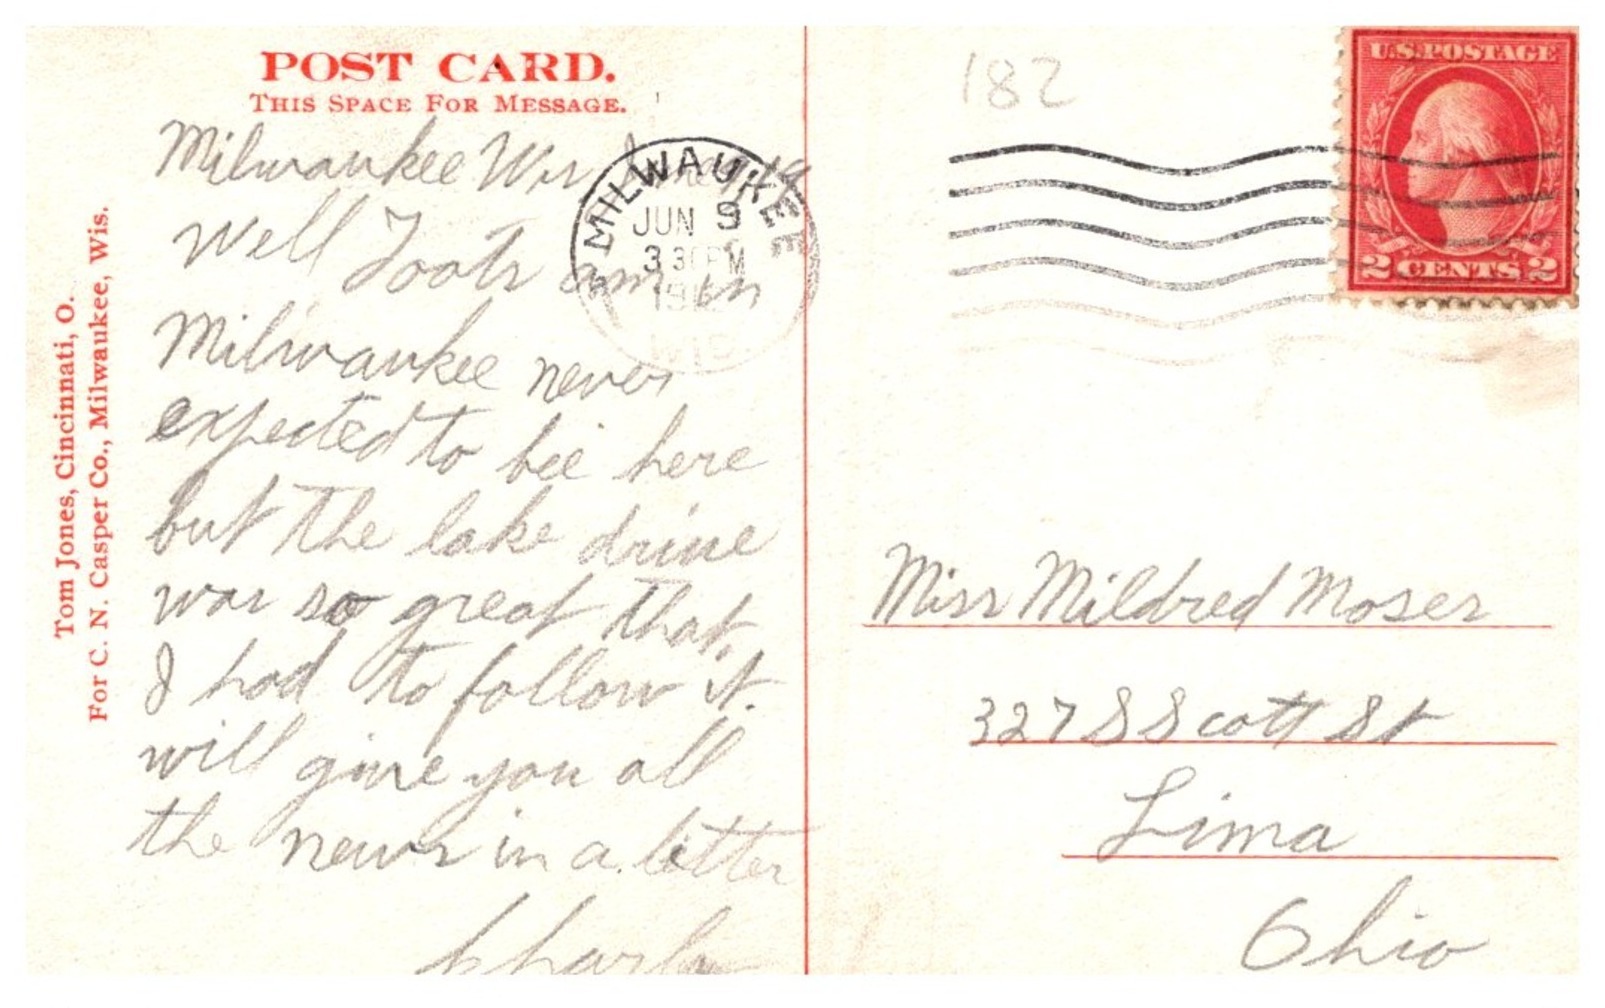 POST CARD.
THIS SPACE FOR MESSAGE.
Milwaukee Wis
Well Toots am in
Milwaukee never
expected to bee here
but the lake drive
was so great that
I had to follow it.
will give you all
the news in a letter
Tom Jones, Cincinnati, O.
For C. N. Casper Co., Milwaukee, Wis.
MILWAUKEE
JUN 9
3 30 PM
WIS
182
U.S. POSTAGE
2 CENTS 2
Miss Mildred Moser
327 S Scott St
Lima
Ohio